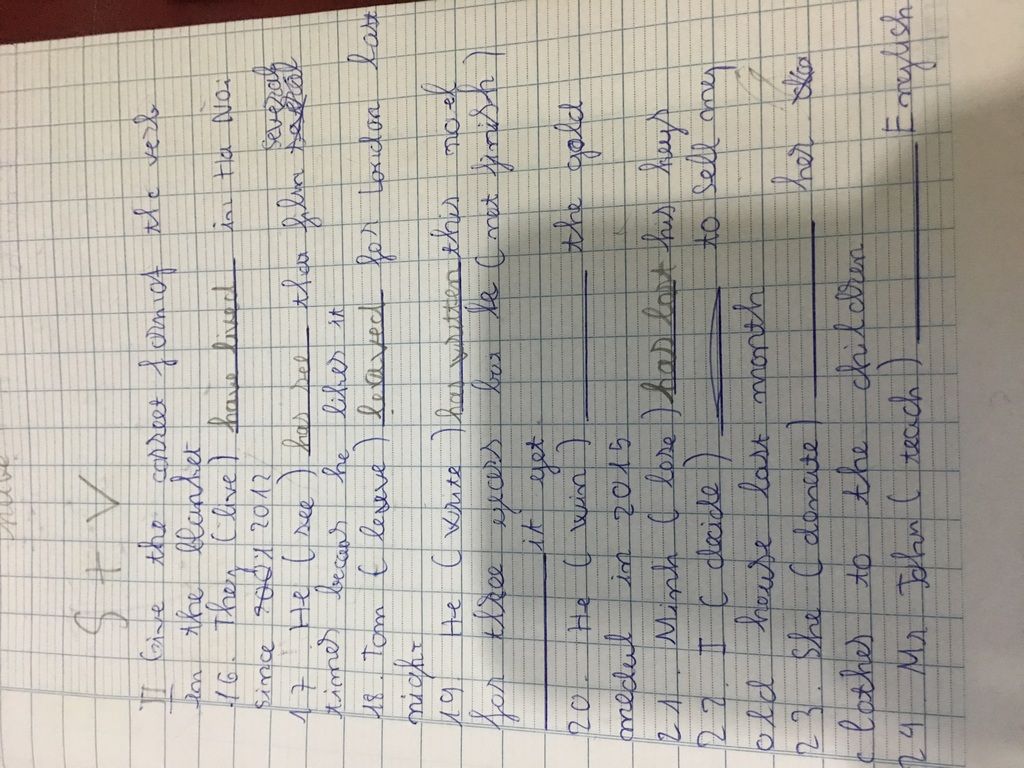 S + V
II Give the correct form of the verb
in the blanket
16. They (live) have lived in Ha Noi
since 2012
17. He (see) has see that film several
times becaus he likes it
18. Tom (leave) leaved for London last
night
19. He (write) has written this novel
for three years but he (not finish)
it yet
20. He (win) the gold
medal in 2015
21. Minh (lose) has lost his keys
22. I (decide) to sell my
old house last month
23. She (donate) her
clothes to the children
24 Mr John (teach) English